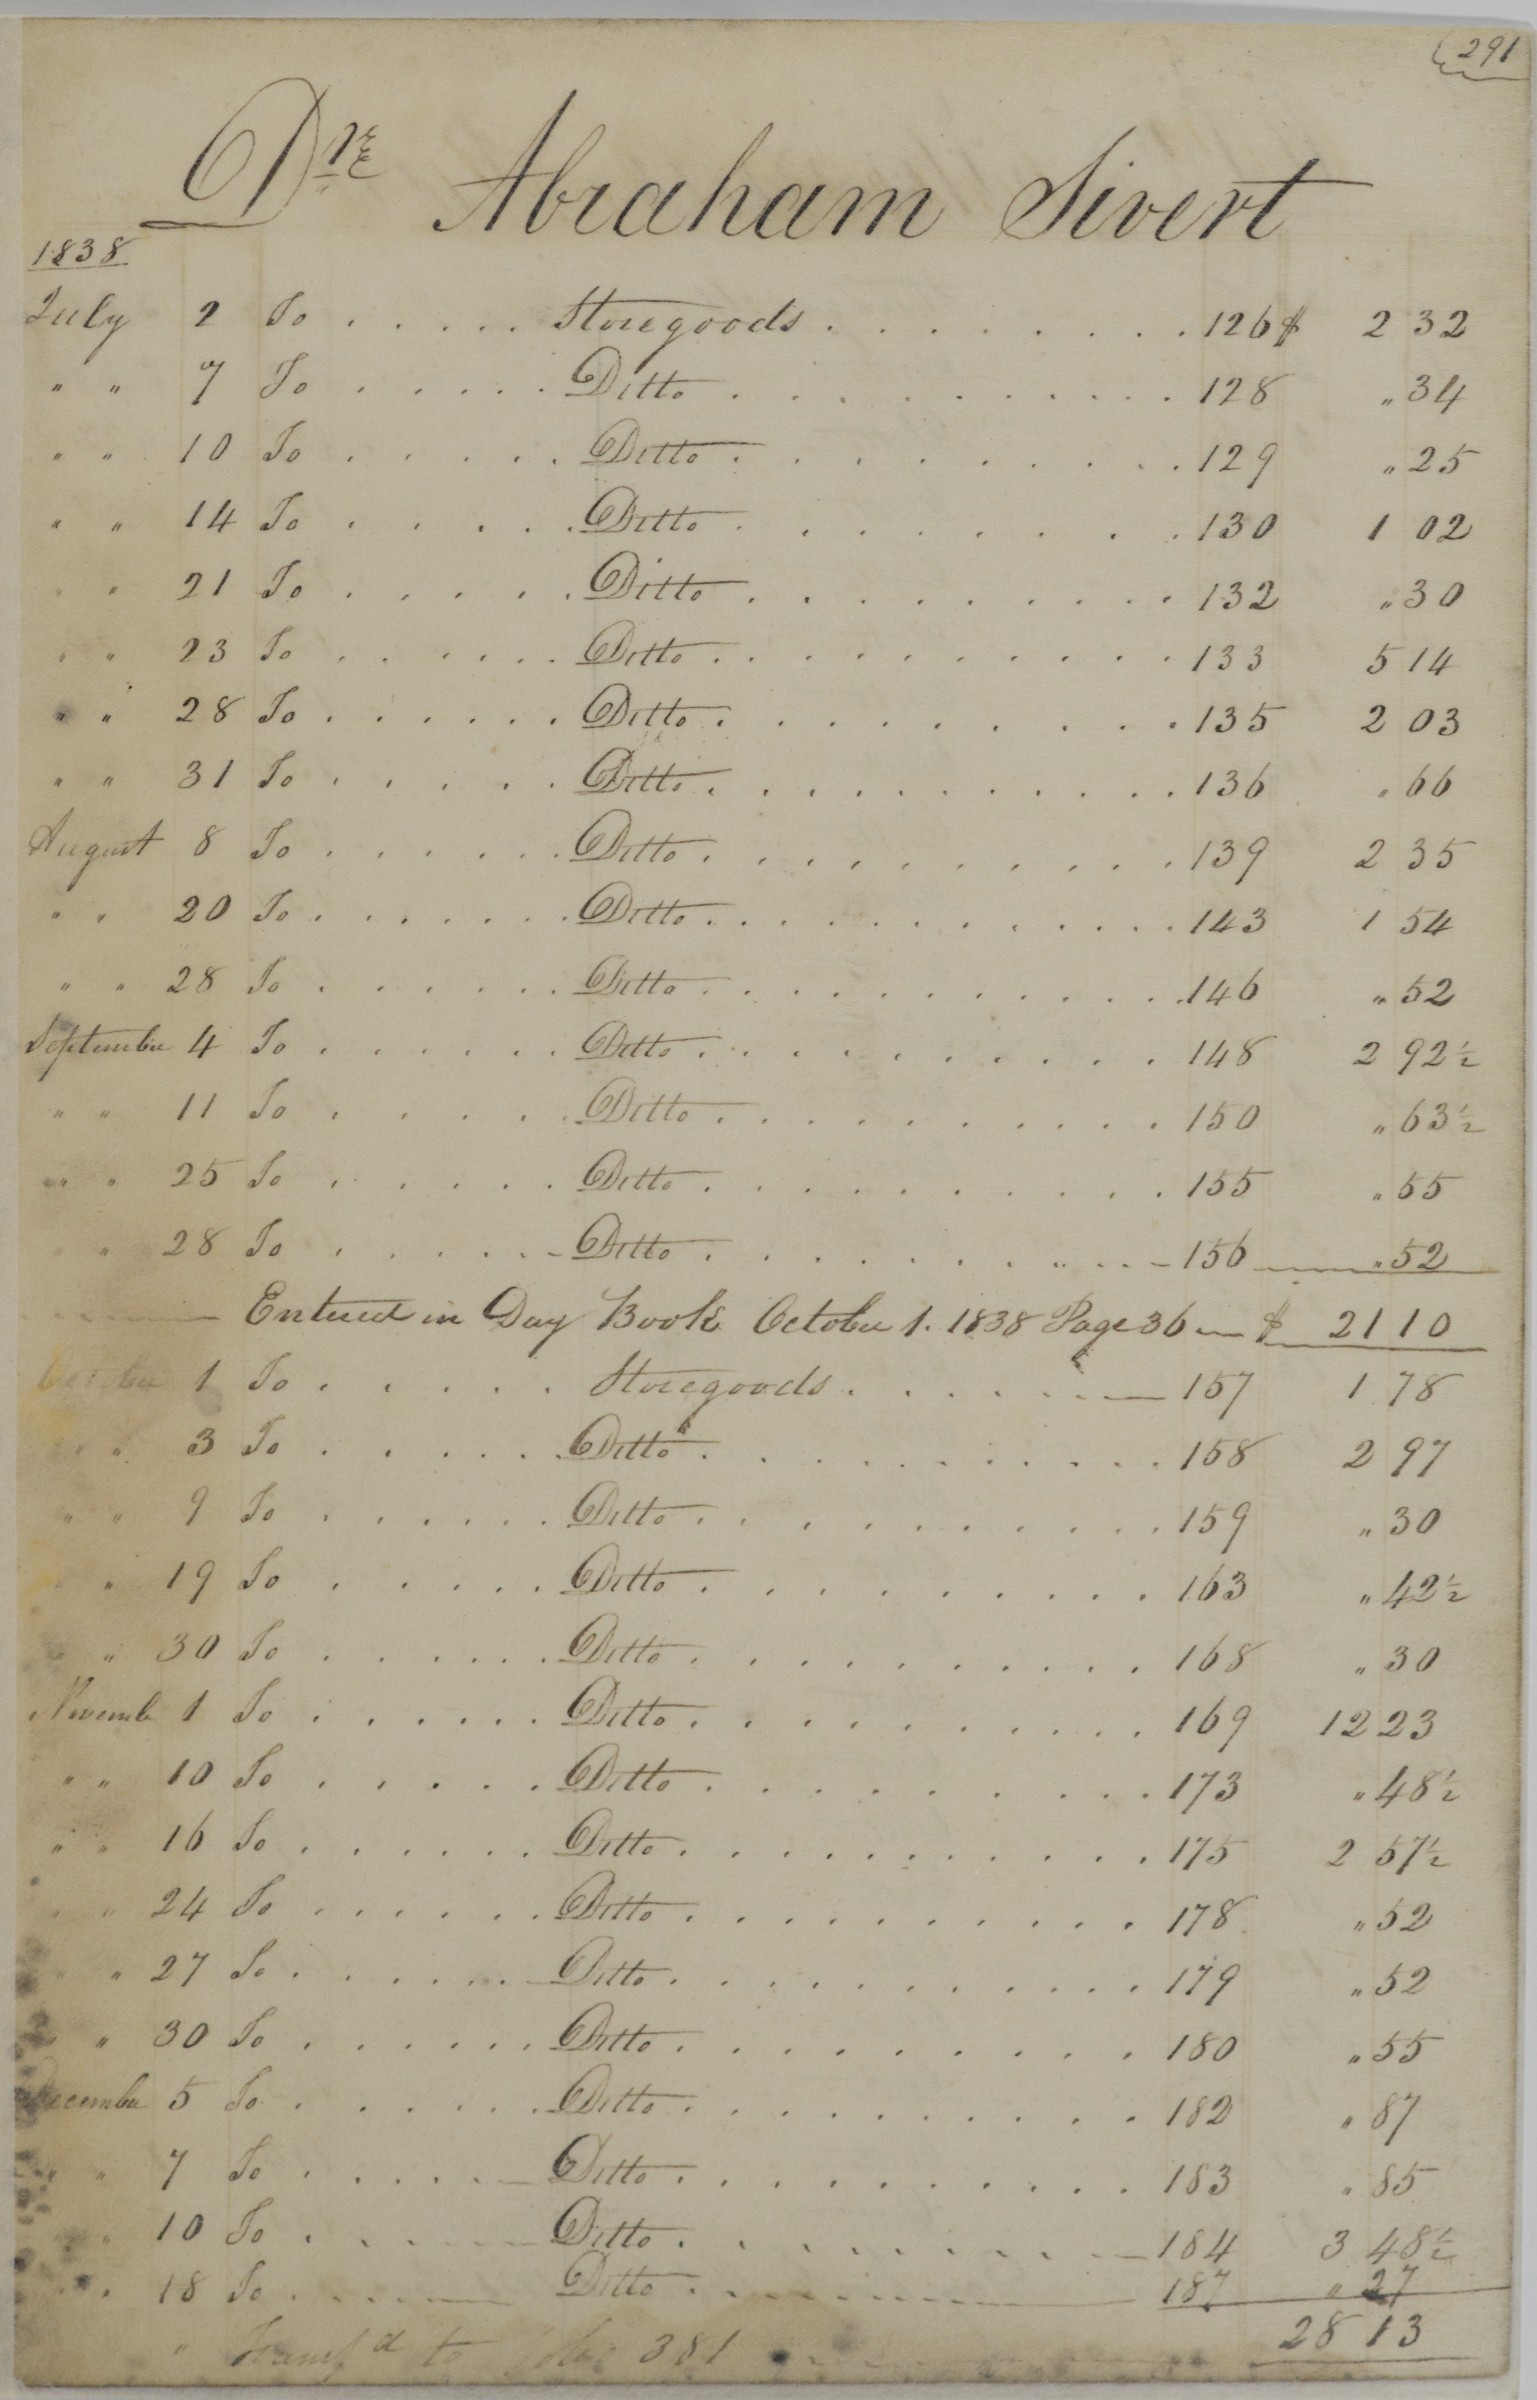 291
Dre Abraham Sivert
1838
July 2 To . . . . . Storegoods . . . . . . . . 126 $ 2 32
" " 7 To . . . . . Ditto . . . . . . . . . . 128 " 34
" " 10 To . . . . . Ditto . . . . . . . . . 129 " 25
" " 14 To . . . . . Ditto . . . . . . . . 130 1 02
" " 21 To . . . . . Ditto . . . . . . . . . 132 " 30
" " 23 To . . . . . . Ditto . . . . . . . . . . 133 5 14
" " 28 To . . . . . . Ditto . . . . . . . . . 135 2 03
" " 31 To . . . . . Ditto . . . . . . . . . . 136 " 66
August 8 To . . . . . . Ditto . . . . . . . . . . 139 2 35
" " 20 To . . . . . . . Ditto . . . . . . . . . . . 143 1 54
" " 28 To . . . . . . Ditto . . . . . . . . . . . 146 " 52
September 4 To . . . . . . Ditto . . . . . . . . . . 148 2 92 1/2
" " 11 To . . . . . Ditto . . . . . . . . . . 150 " 63 1/2
" " 25 To . . . . . Ditto . . . . . . . . . . 155 " 55
" " 28 To . . . . . Ditto . . . . . . . . . . 156 " 52
Entered in Day Book October 1. 1838 Page 36 $ 21 10
October 1 To . . . . . Storegoods . . . . . . 157 1 78
" " 3 To . . . . . Ditto . . . . . . . . . . 158 2 97
" " 9 To . . . . . . Ditto . . . . . . . . . . 159 " 30
" " 19 To . . . . . Ditto . . . . . . . . . 163 " 42 1/2
" " 30 To . . . . . . Ditto . . . . . . . . . . 168 " 30
Novemb 1 To . . . . . . Ditto . . . . . . . . . . 169 12 23
" " 10 To . . . . . Ditto . . . . . . . . . 173 " 48 1/2
" " 16 To . . . . . . Ditto . . . . . . . . . . . 175 2 57 1/2
" " 24 To . . . . . . Ditto . . . . . . . . . . 178 " 52
" " 27 To . . . . . . Ditto . . . . . . . . . . . 179 " 52
" " 30 To . . . . . . Ditto . . . . . . . . . 180 " 55
December 5 To . . . . . . Ditto . . . . . . . . . . 182 " 87
" " 7 To . . . . . Ditto . . . . . . . . . . 183 " 85
" " 10 To . . . . Ditto . . . . . . . . . 184 3 48 1/2
" " 18 To . . . . Ditto . . . . . . . . 187 " 27
" Transfd to Folio 381 28 13